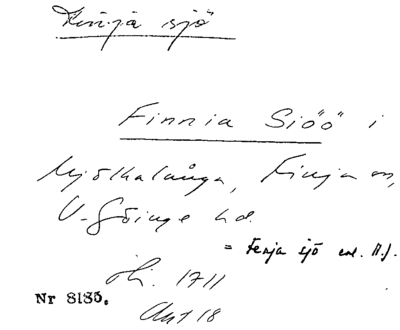 Finja sjö
Finnia Siöö i
Mjölkalånga, Finja sn,
V. Göinge hd.
= Fenja sjö enl. A.J.
1711
Nr 8185.
Ant 18